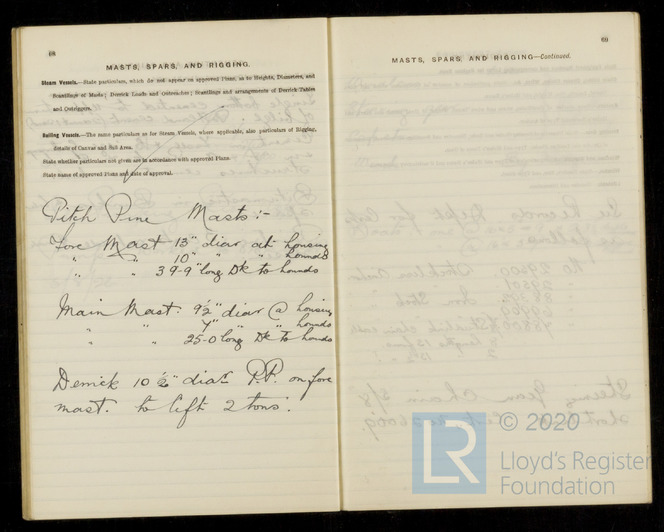 68
MASTS, SPARS, AND RIGGING.
Steam Vessels.—State particulars, which do not appear on approved Plans, as to Heights, Diameters, and
Scantlings of Masts; Derrick Loads and Outreaches; Scantlings and arrangements of Derrick Tables
and Outriggers.
Sailing Vessels.—The same particulars as for Steam Vessels, where applicable, also particulars of Rigging,
details of Canvas and Sail Area.
State whether particulars not given are in accordance with approved Plans.
State name of approved Plans and date of approval.
Pitch Pine Masts:-
Fore Mast 13" diar at housing
" " 10" " " hounds
" " 39-9" long Dk to hounds
Main Mast: 9½" diar @ housing
" " 7" " " hounds
" " 25-0 long Dk to hounds
Derrick 10½" diar P.P. on fore
mast. to lift 2 tons.
69
MASTS, SPARS, AND RIGGING—Continued.
LR © 2020
Lloyd's Register
Foundation